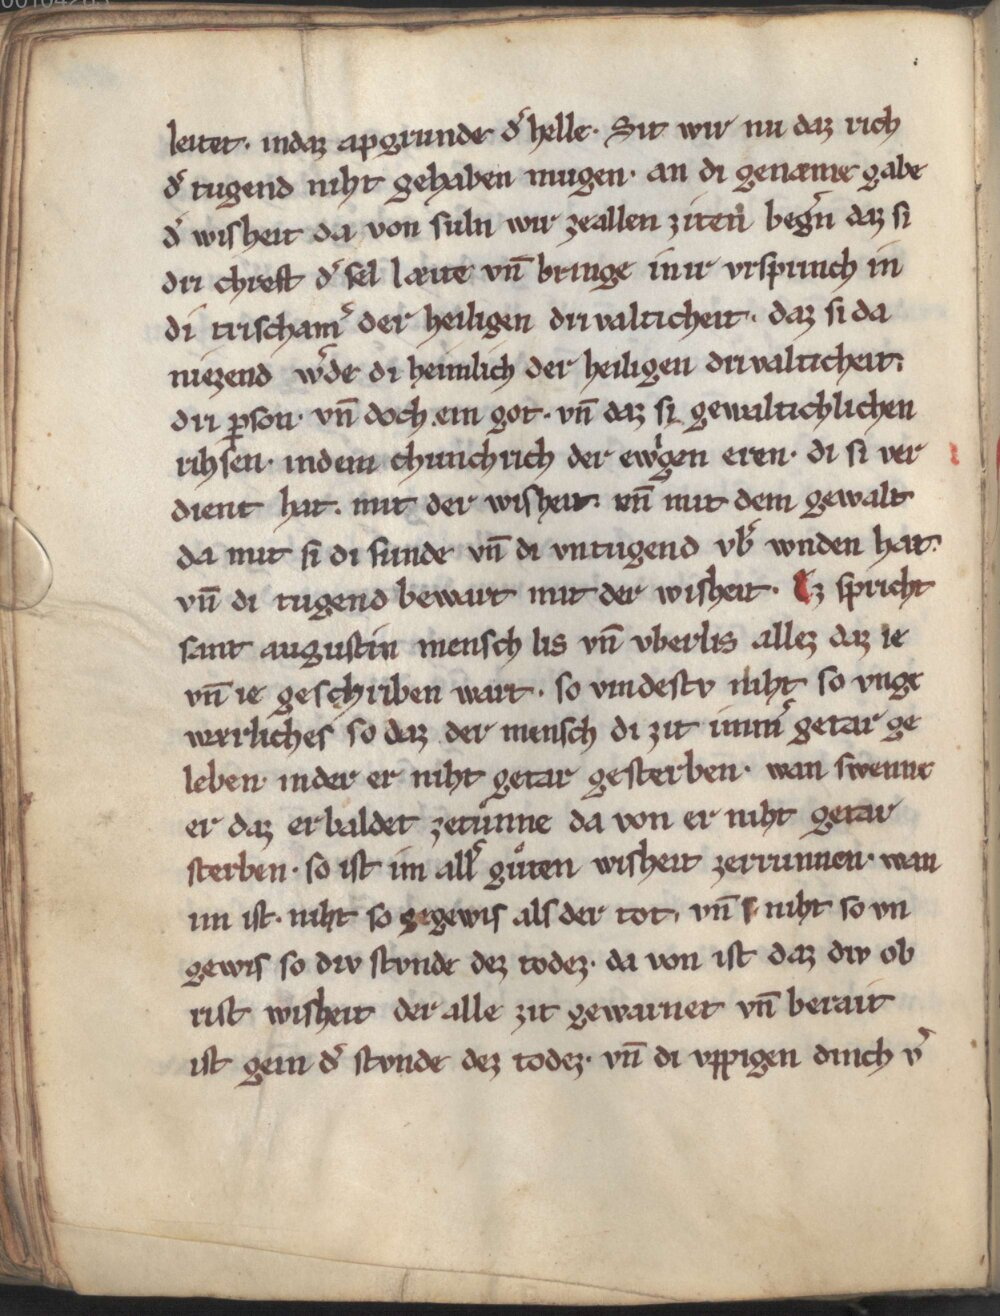 leitet· indaz apgrunde d᷑ helle· Sit wir nu daz rich
d᷑ tugend niht gehaben mugen· an di genæme gabe
d᷑ wisheit da von suln wir zeallen ziten beg᷑n daz si
dri chreft d᷑ sel læite vn̄ bringe in ir vrsprinch in
di trischam᷑ der heiligen drivalticheit· daz si da
niezend w᷑de di heimlich der heiligen drivalticheit·
dri ꝑson· vn̄ doch ein got· vn̄ daz si gewaltichlichen
rihsen· indem chunchrich der ewigen eren· di si ver
dient hat· mit der wisheit· vn̄ mit dem gewalt
da mit si di sunde vn̄ di vntugend vb᷑ wnden hat·
vn̄ di tugend bewart mit der wisheit· Ez spricht
sant augustin mensch lis vn̄ vberlis allez daz ie
vn̄ ie geschriben wart· so vindestv niht so vnge
wærliches so daz der mensch di zit imm᷑ getar ge
leben· inder er niht getar gesterben· wan swenne
er daz erbaldet zetůnne da von er niht getar
sterben· so ist im all᷑ gůten wisheit zerrunnen· wan
im ist· niht so gegewis als der tot· vn̄ niht so vn
gewis so div stvnde dez todez· da von ist daz div ob
rist wisheit der alle zit gewarnet vn̄ berait
ist gein d᷑ stvnde dez todez· vn̄ di vppigen dinch v᷑